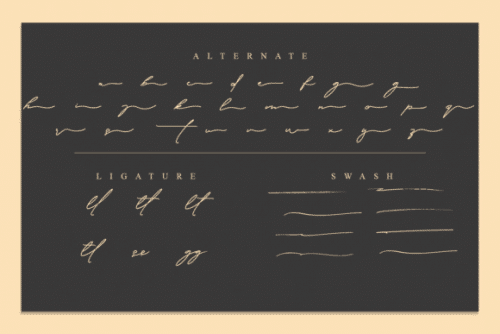 ALTERNATE
a b c d e f g g
h i n q k l m n o p q
v s T u n w u x y z
LIGATURE
ll tt lt
tl se gg
SWASH